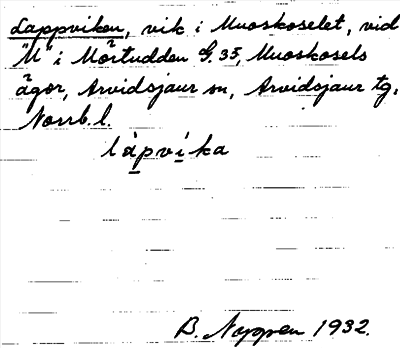 Lappviken, vik i Muoskoselet, vid
"M" i Mörtudden G. 35, Muoskosels
ägor, Arvidsjaur sn, Arvidsjaur tg,
Norrb. l.
làpvìka
B. Nygren 1932.